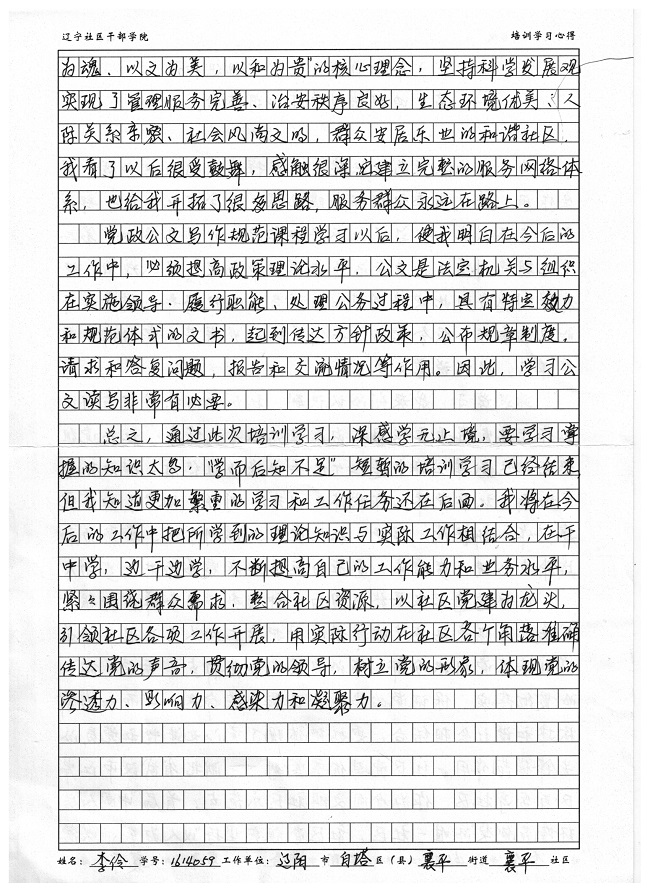 辽宁社区干部学院 培训学习心得
为魂、以文为美，以和为贵"的核心理念，坚持科学发展观
实现了管理服务完善、治安秩序良好，生态环境优美、人
际关系亲密、社会风尚文明，群众安居乐业的和谐社区，
我看了以后很受鼓舞，感触很深它建立完整的服务网络体
系，也给我开拓了很多思路，服务群众永远在路上。
党政公文写作规范课程学习以后，使我明白在今后的
工作中，必须提高政策理论水平，公文是法定机关与组织
在实施领导、履行职能、处理公务过程中，具有特定效力
和规范体式的文书，起到传达方针政策，公布规章制度，
请求和答复问题，报告和交流情况等作用。因此，学习公
文读写非常有必要。
总之，通过此次培训学习，深感学无止境，要学习掌
握的知识太多，"学而后知不足"短暂的培训学习已经结束，
但我知道更加繁重的学习和工作任务还在后面。我将在今
后的工作中把所学到的理论知识与实际工作相结合，在干
中学，边干边学，不断提高自己的工作能力和业务水平，
紧々围绕群众需求，整合社区资源，以社区党建为龙头，
引领社区各项工作开展，用实际行动在社区各个角落准确
传达党的声音，贯彻党的领导，树立党的形象，体现党的
渗透力、影响力、感染力和凝聚力。
姓名：李伶 学号：1614059 工作单位：辽阳 市 白塔 区（县） 襄平 街道 襄平 社区